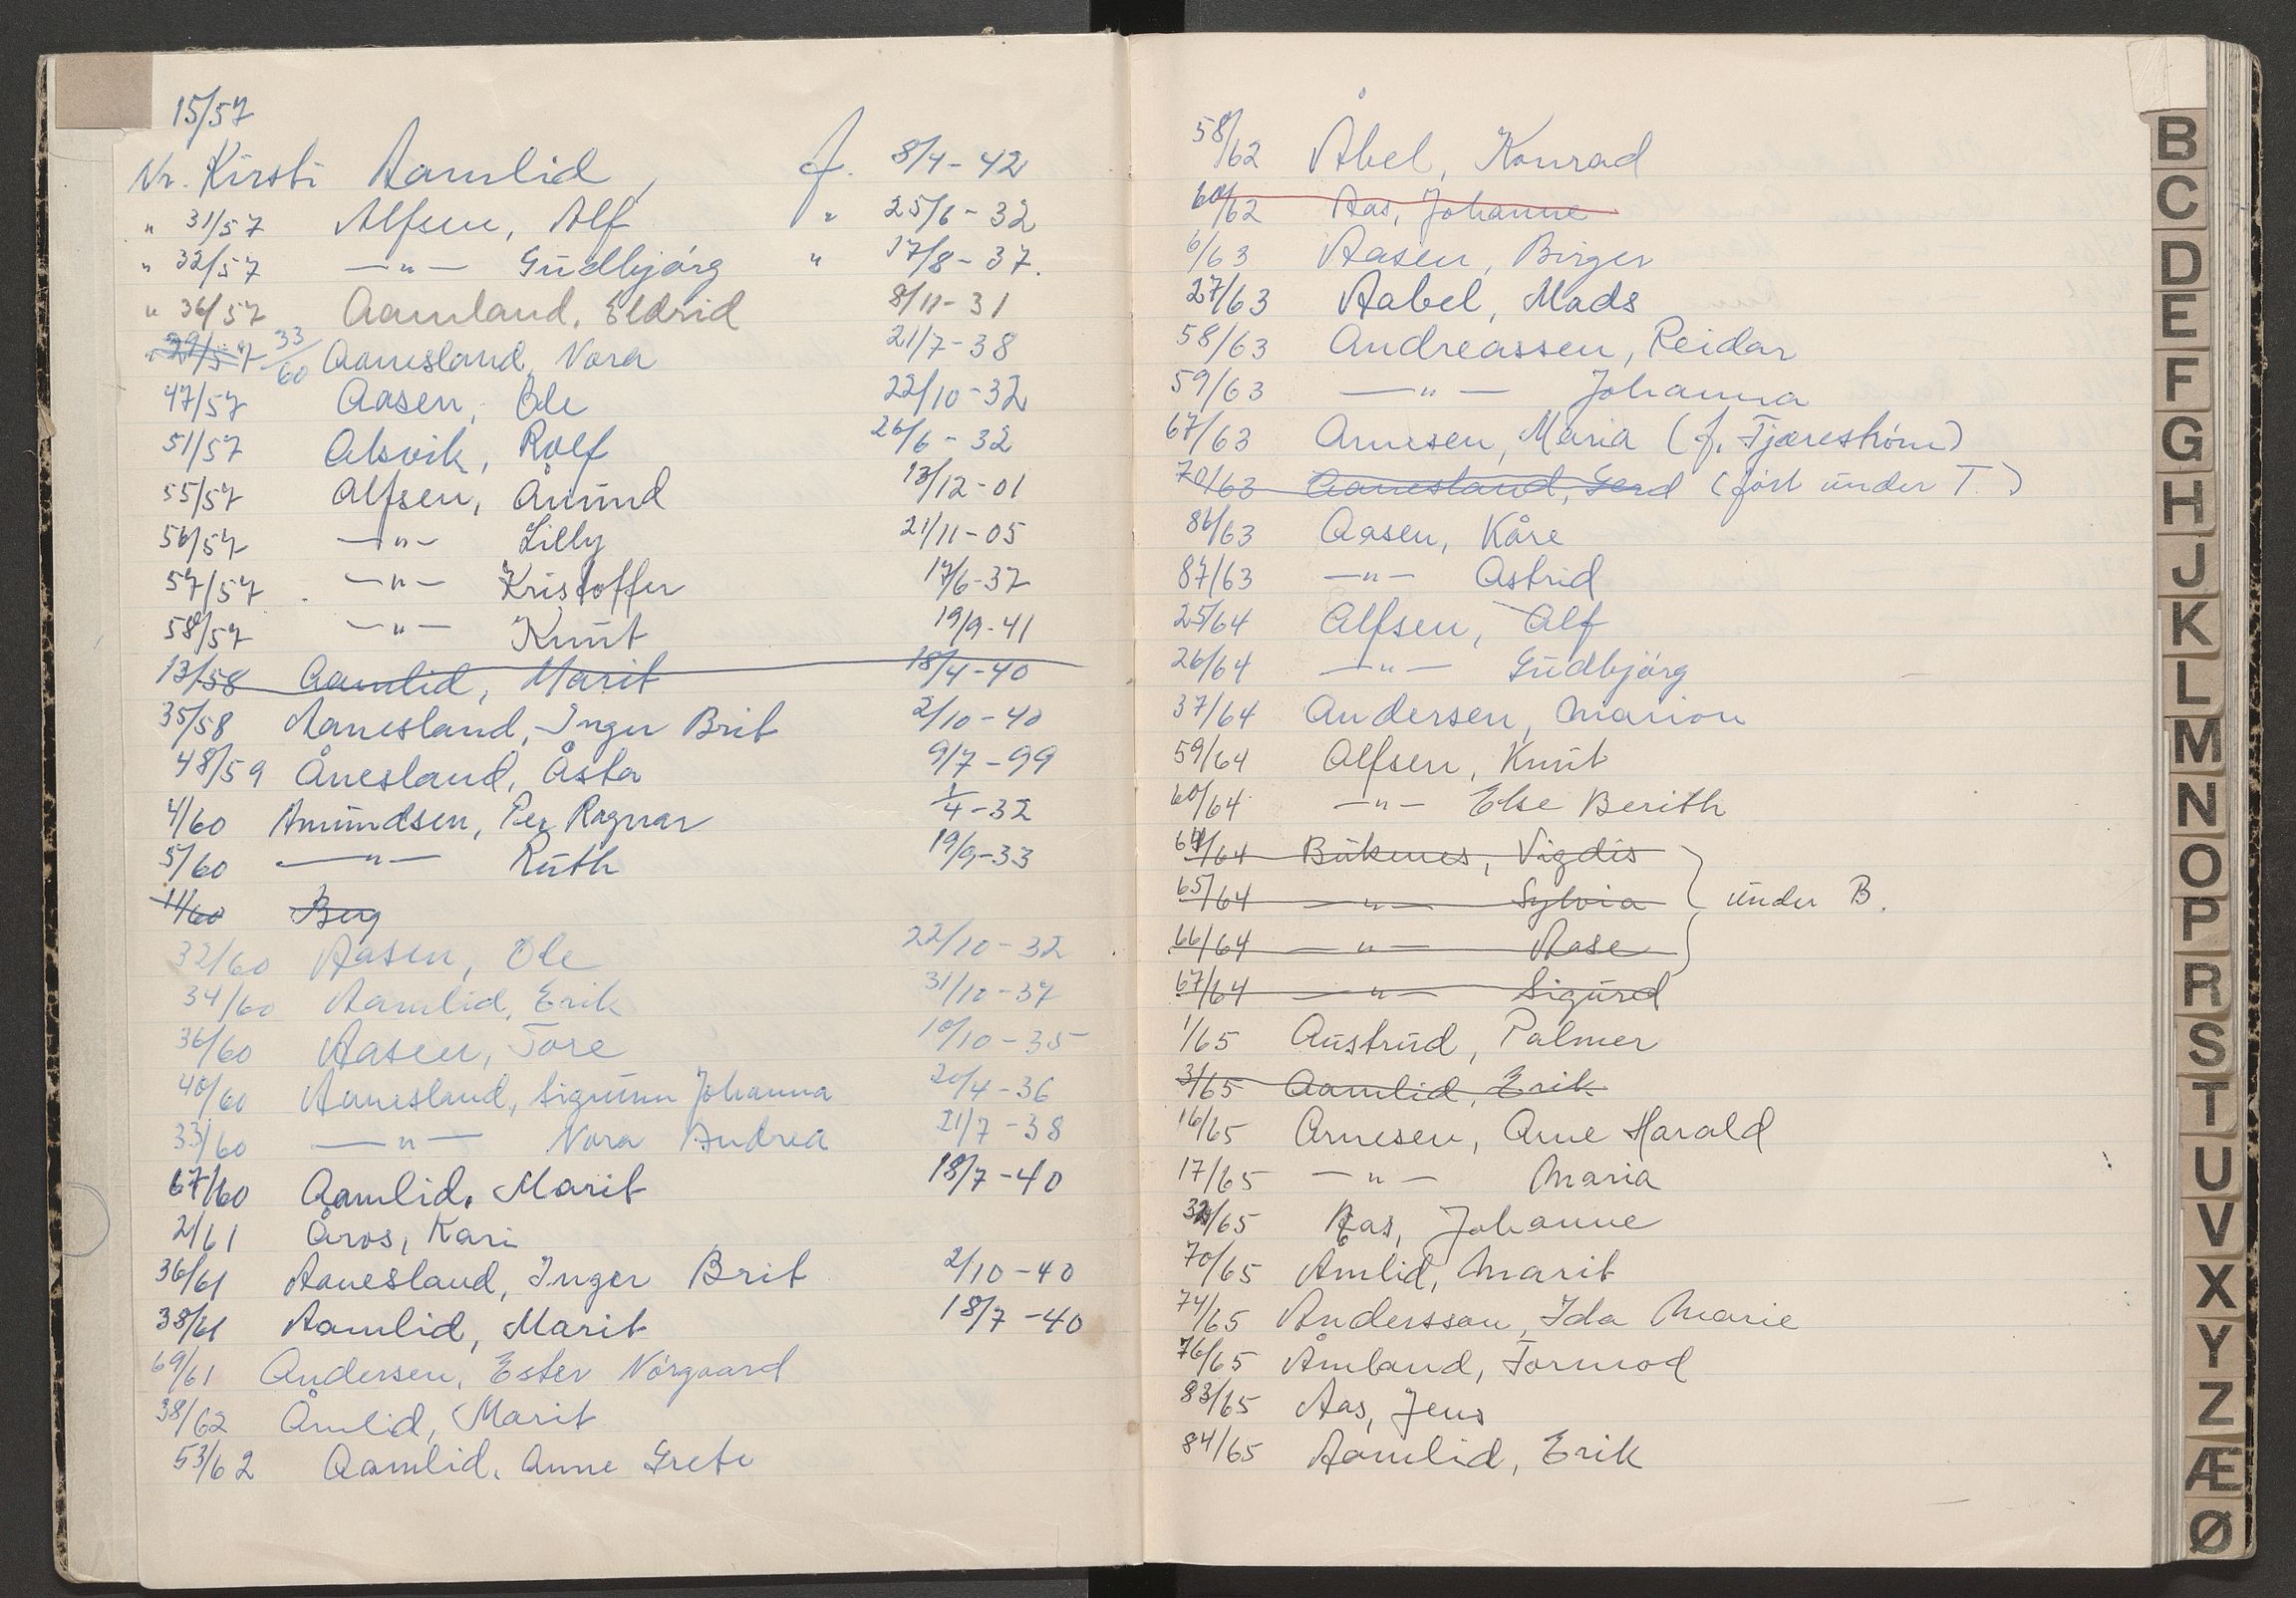 15/57
Nr. Kirsti Aamlid, f. 8/4-42
" 31/57 Alfsen, Alf " 25/6-32
" 32/57 —"— Gudbjørg " 17/8-37.
" 36/57 Aamland, Eldrid 8/11-31
" 39/57 33/60 Aanesland, Nora 21/7-38
47/57 Aasen, Ole 22/10-32
51/57 Alsvik, Rolf 26/6-32
55/57 Alfsen, Ånund 13/12-01
56/57 —"— Lilly 21/11-05
57/57 —"— Kristoffer 17/6-37
58/57 —"— Knut 19/9-41
13/58 Aamlid, Marit 18/4-40
35/58 Aanesland, Inger Brit 2/10-40
48/59 Ånesland, Åsta 9/7-99
4/60 Amundsen, Per Ragnar 1/4-32
5/60 —"— Ruth 19/9-33
11/60 Berg
32/60 Aasen, Ole 22/10-32
34/60 Aamlid, Erik 31/10-37
36/60 Aasen, Tore 10/10-35
40/60 Aanesland, Sigrunn Johanna 20/4-36
33/60 —"— Nora Andrea 21/7-38
67/60 Aamlid, Marit 18/7-40
2/61 Åros, Kari
36/61 Aanesland, Inger Brit 2/10-40
38/61 Aamlid, Marit 18/7-40
69/61 Andersen, Ester Nørgaard
38/62 Åmlid, Marit
53/62 Aamlid, Anne Grete
58/62 Åbel, Konrad
60/62 Aas, Johanne
6/63 Aasen, Birger
27/63 Aabel, Mads
58/63 Andreassen, Reidar
59/63 —"— Johanna
67/63 Arnesen, Maria (f. Tjæreström)
70/63 Aanesland, Gerd (ført under T.)
86/63 Aasen, Kåre
87/63 —"— Astrid
25/64 Alfsen, Alf
26/64 —"— Gudbjørg
37/64 Andersen, Marion
59/64 Alfsen, Knut
60/64 —"— Else Berith
64/64 Bukenes, Vigdis
65/64 —"— Sylvia under B.
66/64 —"— Aase
67/64 —"— Sigurd
1/65 Austrud, Palmer
3/65 Aamlid, Erik
16/65 Arnesen, Arne Harald
17/65 —"— Maria
32/65 Aas, Johanne
70/65 Åmlid, Marit
74/65 Andersson, Ida Marie
76/65 Åmland, Tormod
83/65 Aas, Jens
84/65 Aamlid, Erik
B
C
D
E
F
G
H
J
K
L
M
N
O
P
R
S
T
U
V
X
Y
Z
Æ
Ø